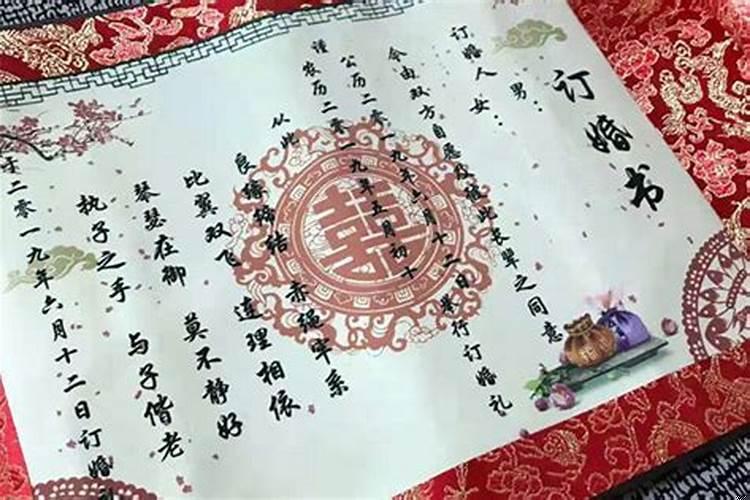 订婚书
男：
订婚人女：
今由双方自愿及征此长辈之同意
公历二零一九年六月十二日举行订婚礼
谨农历二零一九年五月初十
从此 赤绳牢系
良缘缔结 连理相依
比翼双飞 莫不静好
琴瑟在御 与子偕老
执子之手
于二零一九年六月十二日订婚